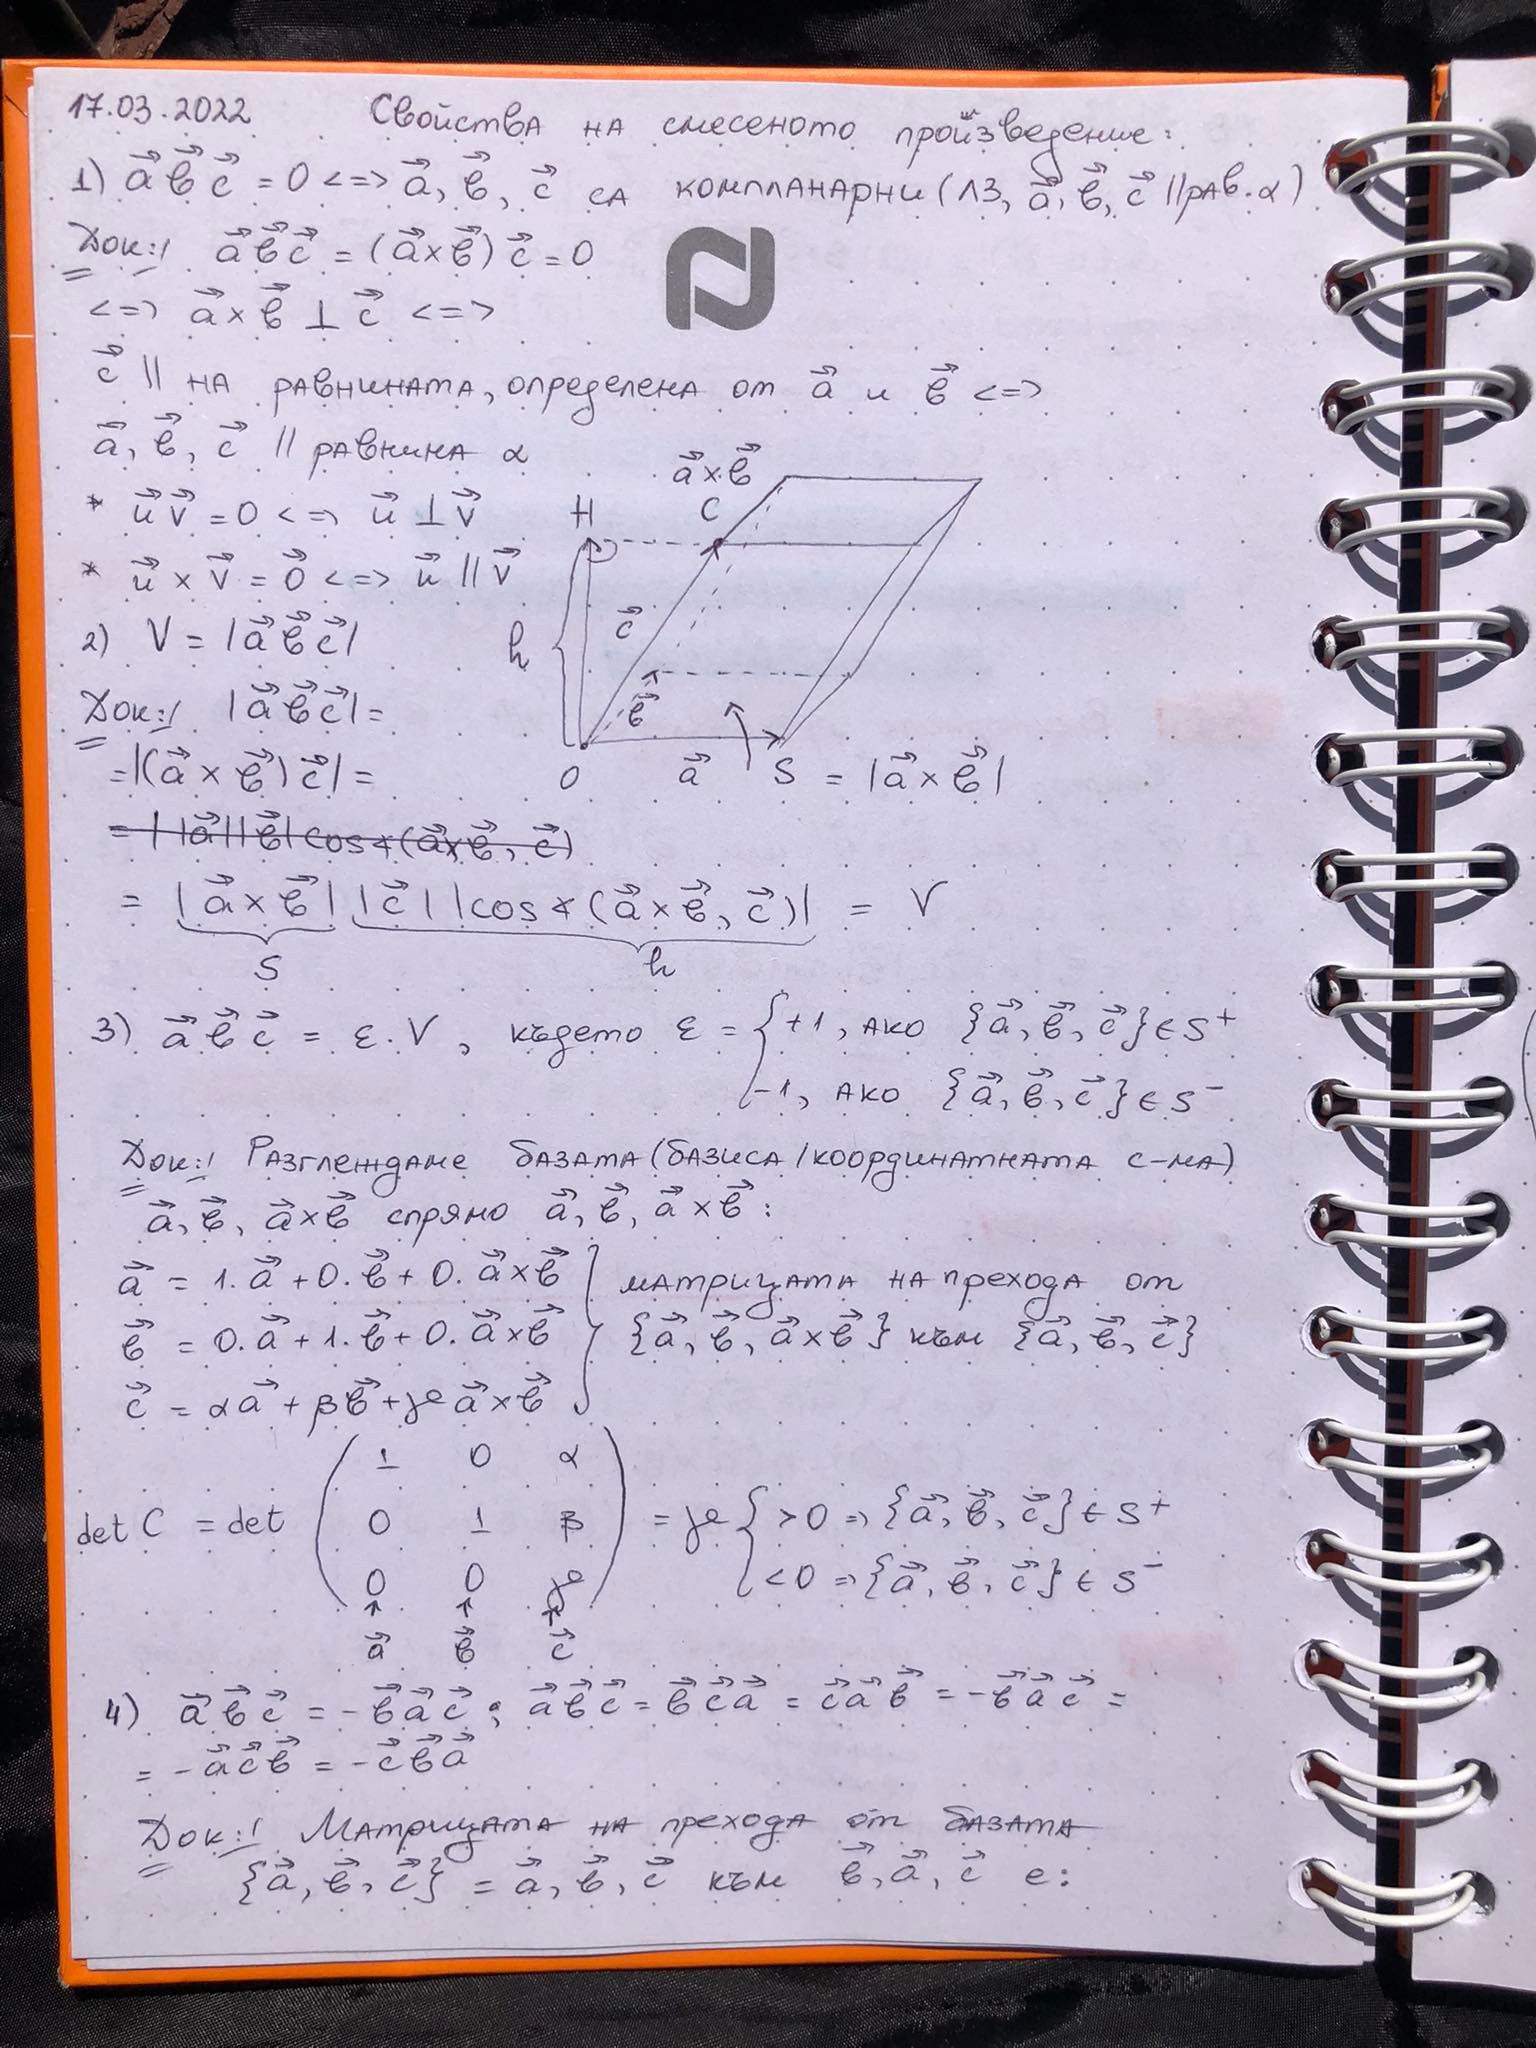 17.03.2022 Свойства на смесеното произведение:
1) a⃗ b⃗ c⃗ = 0 <=> a⃗, b⃗, c⃗ са компланарни (ЛЗ, a⃗, b⃗, c⃗ || рав. α)
Док:! a⃗ b⃗ c⃗ = (a⃗ x b⃗) c⃗ = 0
<=> a⃗ x b⃗ ⊥ c⃗ <=>
c⃗ || на равнината, определена от a⃗ и b⃗ <=>
a⃗, b⃗, c⃗ || равнина α
* u⃗ v⃗ = 0 <=> u⃗ ⊥ v⃗
* u⃗ x v⃗ = 0⃗ <=> u⃗ || v⃗
2) V = |a⃗ b⃗ c⃗|
Док:! |a⃗ b⃗ c⃗| =
= |(a⃗ x b⃗) c⃗| =
a⃗ x b⃗
H C
c⃗
h
b⃗
O a⃗ S = |a⃗ x b⃗|
= | |a⃗| |b⃗| cos∢(a⃗ x b⃗, c⃗)
= |a⃗ x b⃗| |c⃗| |cos∢(a⃗ x b⃗, c⃗)| = V
S h
3) a⃗ b⃗ c⃗ = ε.V, където ε = { +1, ако {a⃗, b⃗, c⃗} ∈ S⁺
-1, ако {a⃗, b⃗, c⃗} ∈ S⁻
Док:! Разглеждаме базата (базиса/координатната с-ма)
a⃗, b⃗, a⃗ x b⃗ спрямо a⃗, b⃗, a⃗ x b⃗:
a⃗ = 1.a⃗ + 0.b⃗ + 0.a⃗ x b⃗ } матрицата на прехода от
b⃗ = 0.a⃗ + 1.b⃗ + 0.a⃗ x b⃗ {a⃗, b⃗, a⃗ x b⃗} към {a⃗, b⃗, c⃗}
c⃗ = αa⃗ + βb⃗ + γa⃗ x b⃗
1 0 α
det C = det ( 0 1 β ) = γ { >0 => {a⃗, b⃗, c⃗} ∈ S⁺
0 0 γ <0 => {a⃗, b⃗, c⃗} ∈ S⁻
↑ ↑ ↑
a⃗ b⃗ c⃗
4) a⃗ b⃗ c⃗ = -b⃗ a⃗ c⃗; a⃗ b⃗ c⃗ = b⃗ c⃗ a⃗ = c⃗ a⃗ b⃗ = -b⃗ a⃗ c⃗ =
= -a⃗ c⃗ b⃗ = -c⃗ b⃗ a⃗
Док:! Матрицата на прехода от базата
{a⃗, b⃗, c⃗} = a⃗, b⃗, c⃗ към b⃗, a⃗, c⃗ е: